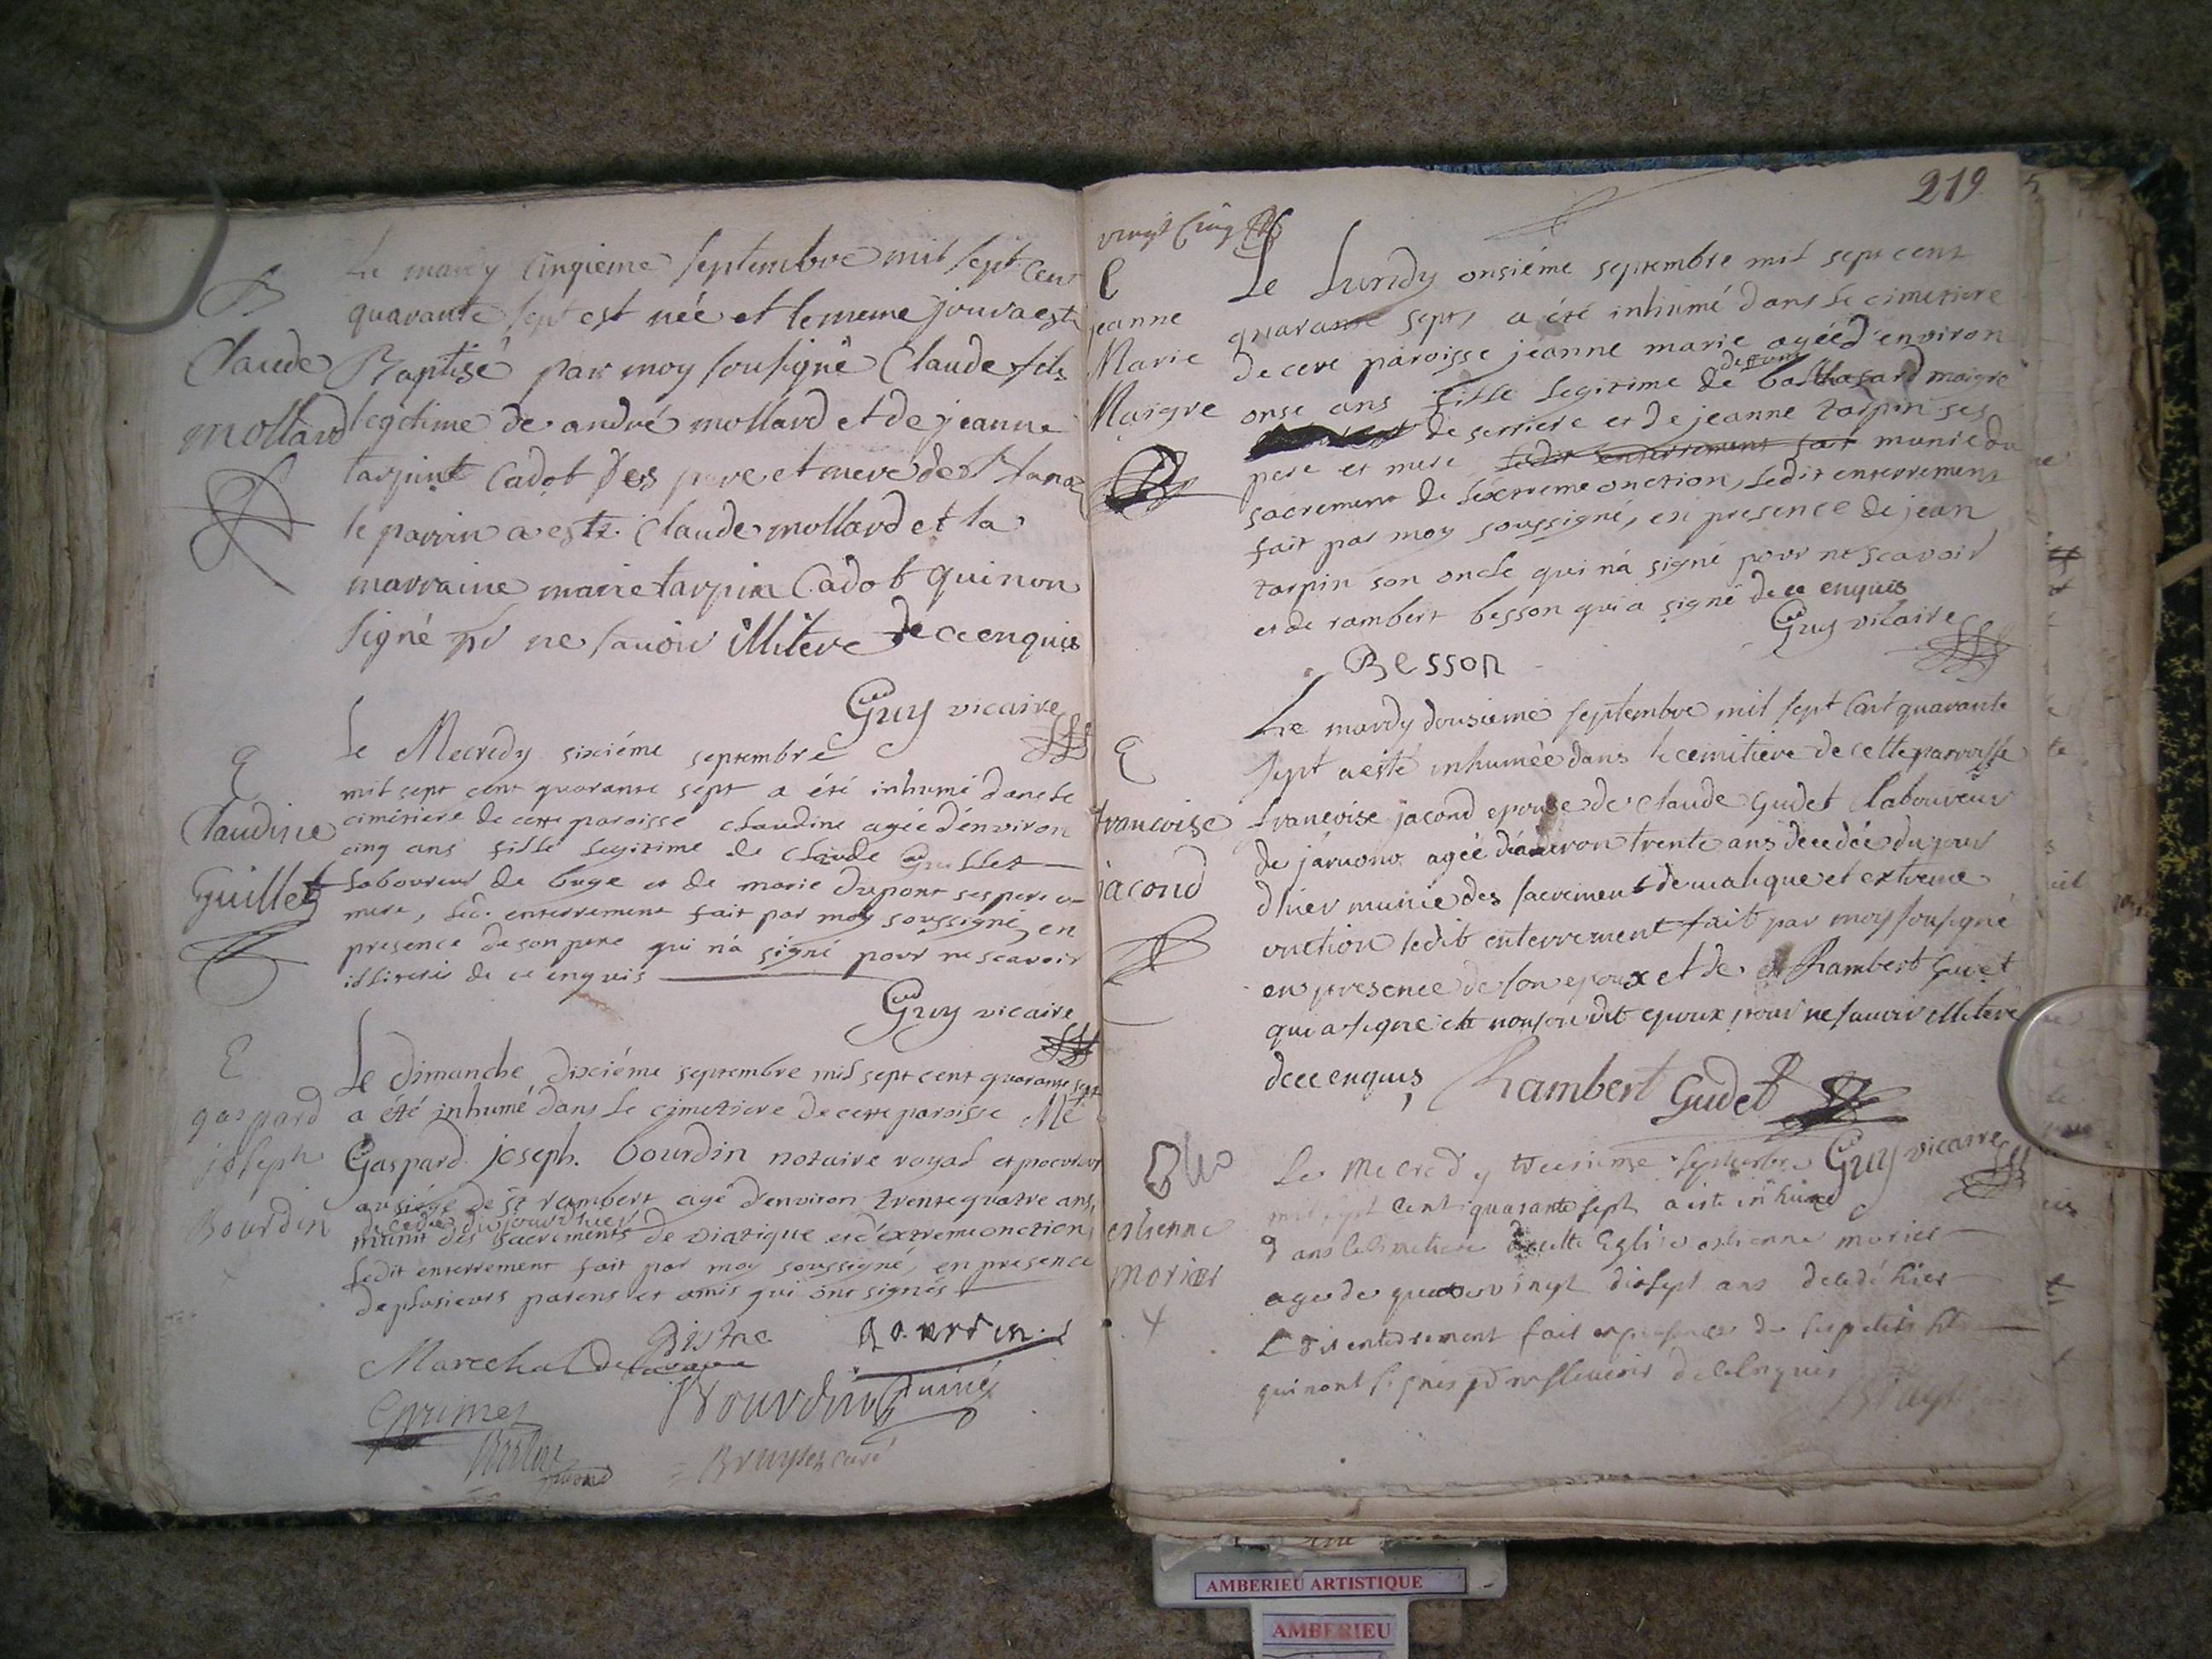 B
Claude
mollard
Le mardy cinqieme septembre mil sept cent
quarante sept est née et le meme jour a esté
Baptisé par moy sousigné Claude fils
legitime de andré mollard et de jeanne
tarpin Cadot ses pere et mere de
le parrin a esté Claude mollard et la
marraine marie tarpin Cadot qui non
signé pr ne savoir illitere de ce enquis
Guy vicaire
E
Claudine
Guillet
Le Mecredy sixiéme septembre
mil sept cent quarante sept a été inhumé dans le
cimétiere de cette paroisse claudine agée d'environ
cinq ans fille legitime de Claude Guillet
laboureur de buge et de marie dupont ses pere et
mere, led. enterrement fait par moy soussigné, en
presence de son pere qui n'a signé pour ne scavoir
illiteris de ce enquis
Guy vicaire
E
gaspard
joseph
Bourdin
Le dimanche dixiéme septembre mil sept cent quarante sept
a été inhumé dans le cimetiere de cette paroisse Me
Gaspard joseph. bourdin notaire royal et procureur
au siége de st rambert agé d'environ trente quatre ans,
decedé du jour d'hier
munit des sacrements de viatique et d'extreme onction,
ledit enterrement fait par moy soussigné, en presence
de plusieurs parens et amis qui ont signés
Marechal Bourdin
Bourdin
Bruyset curé
219
vingt cinq
E
jeanne
Marie
Maigre
Le Lundy onsiéme septembre mil sept cent
quarante sept, a été inhumé dans le cimetiere
de cette paroisse jeanne marie agée d'environ
deffunt
onse ans fille legitime de balthasard maigre
de serriere et de jeanne tarpin ses
pere et mere ledit enterrement fait munie du
sacrement de l'éxtreme onction, ledit enterrement
fait par moy soussigné, en presence de jean
tarpin son oncle qui n'a signé pour ne scavoir
et de rambert besson qui a signé de ce enquis
Guy vicaire
Besson
E
francoise
jacond
Le mardy dousieme septembre mil sept cent quarante
sept a esté inhumée dans le cemitiere de cette parroisse
francoise jacond epouse de Claude Gudet laboureur
de agée d'anviron trente ans decedée du jour
d'hier munie des sacrement de viatique et extreme
onction ledit enterrement fait par moy sousigné
en presence de son epoux et de Rambert Gudet
qui a signé et non son dit epoux pour ne savoir illitere
de ce enquis Rambert Gudet
Guy vicaire
estienne
morier
Le Mecredy treisieme septembre
mil sept cent quarante sept a esté inhumé
dans le cimetiere de cette Eglise estienne morier
age de quatre vingt dixsept ans decedé hier
Ledit enterrement fait en presence de ses petits fils
qui n'ont signés pr ne sçavoir de ce enquis
AMBERIEU ARTISTIQUE
AMBERIEU